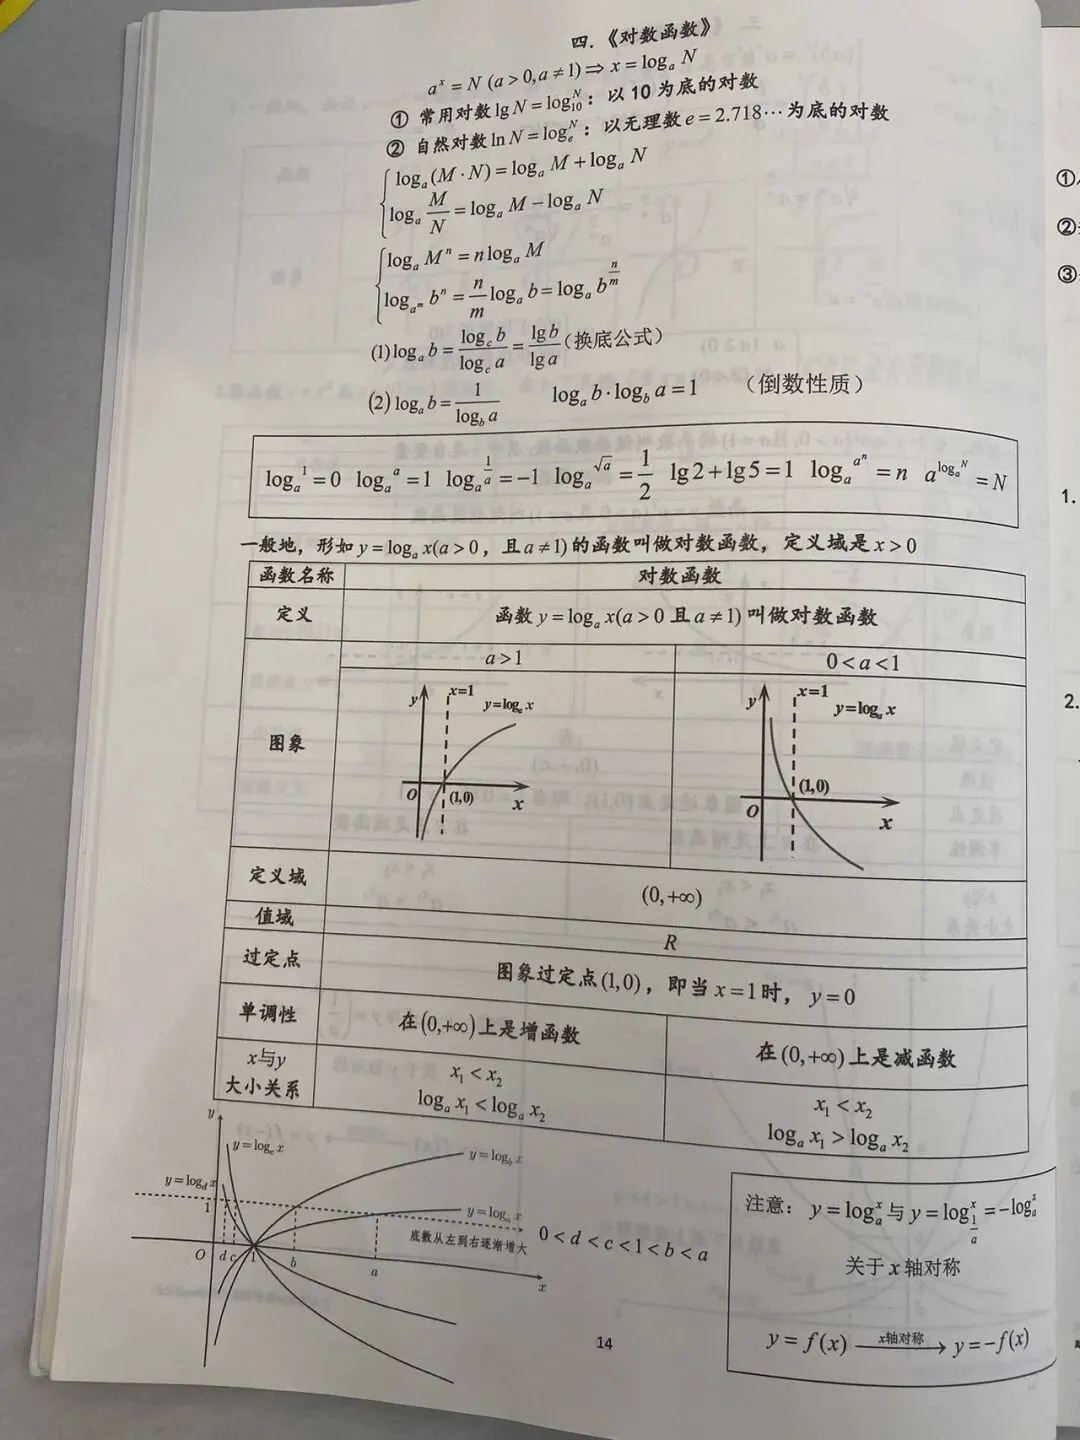 四.《对数函数》
a^x = N (a > 0, a ≠ 1) ⇒ x = log_a N
① 常用对数 lg N = log_10^N：以 10 为底的对数
② 自然对数 ln N = log_e^N：以无理数 e = 2.718… 为底的对数
log_a (M · N) = log_a M + log_a N
log_a M/N = log_a M − log_a N
log_a M^n = n log_a M
log_{a^m} b^n = n/m log_a b = log_a b^{n/m}
(1) log_a b = log_c b / log_c a = lg b / lg a (换底公式)
(2) log_a b = 1 / log_b a log_a b · log_b a = 1 （倒数性质）
log_a^1 = 0 log_a^a = 1 log_a^{1/a} = −1 log_a^{√a} = 1/2 lg 2 + lg 5 = 1 log_a^{a^n} = n a^{log_a^N} = N
一般地，形如 y = log_a x (a > 0，且 a ≠ 1) 的函数叫做对数函数，定义域是 x > 0
函数名称 对数函数
定义 函数 y = log_a x (a > 0 且 a ≠ 1) 叫做对数函数
图象 a > 1 0 < a < 1
y x=1 y=log_a x O (1,0) x
y x=1 y=log_a x O (1,0) x
定义域 (0, +∞)
值域 R
过定点 图象过定点 (1,0)，即当 x = 1 时，y = 0
单调性 在 (0,+∞) 上是增函数 在 (0,+∞) 上是减函数
x与y
大小关系
x₁ < x₂
log_a x₁ < log_a x₂
x₁ < x₂
log_a x₁ > log_a x₂
y
y=log_c x
y=log_b x
y=log_d x
1
y=log_a x
底数从左到右逐渐增大
O d c 1 b a x
0 < d < c < 1 < b < a
注意： y = log_a^x 与 y = log_{1/a}^x = −log_a^x
关于 x 轴对称
y = f(x) x轴对称→ y = −f(x)
14
①
②
③
1.
2.